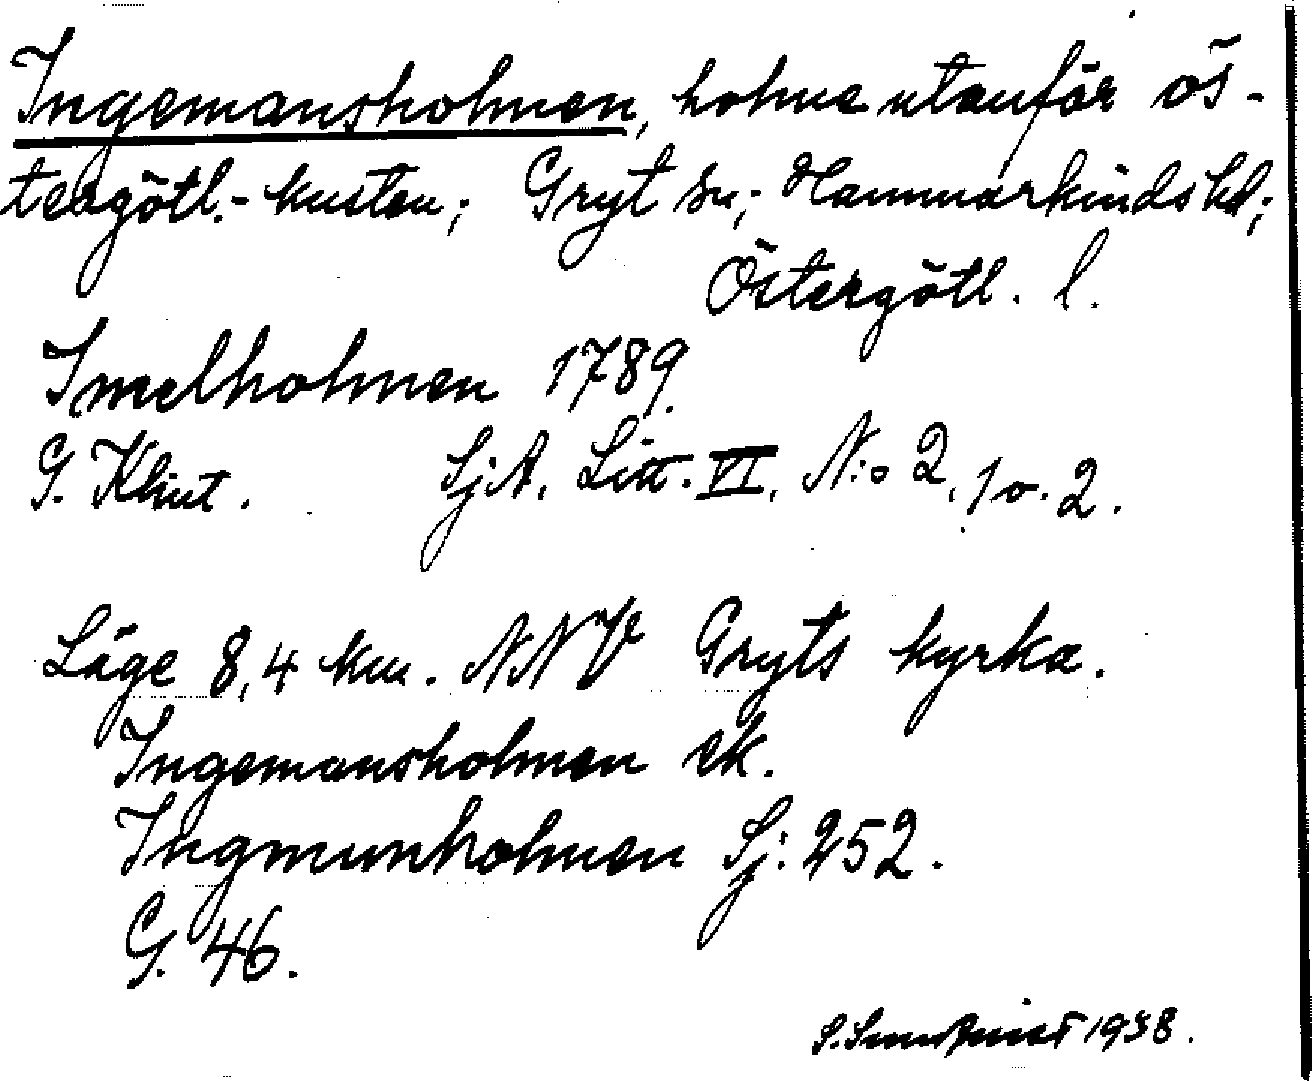 Ingemansholmen, holme utanför ös-
tergötl.-kusten; Gryt sn; Hammarkinds hd;
Östergötl. l.
Imelholmen 1789.
G. Klint. SjA. Litt. VI, N:o 2, 1 o. 2.
Läge 8,4 km. NNV Gryts kyrka.
Ingemansholmen ek.
Ingmunholmen Sj: 252.
G. 46.
S. Sundquist 1938.